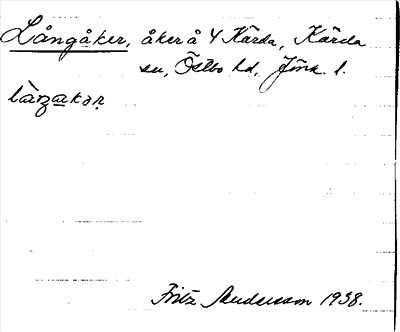 Långåker, åker å 4 Kärda, Kärda
sn, Östbo hd, Jönk. l.
Fritz Andersson 1938.